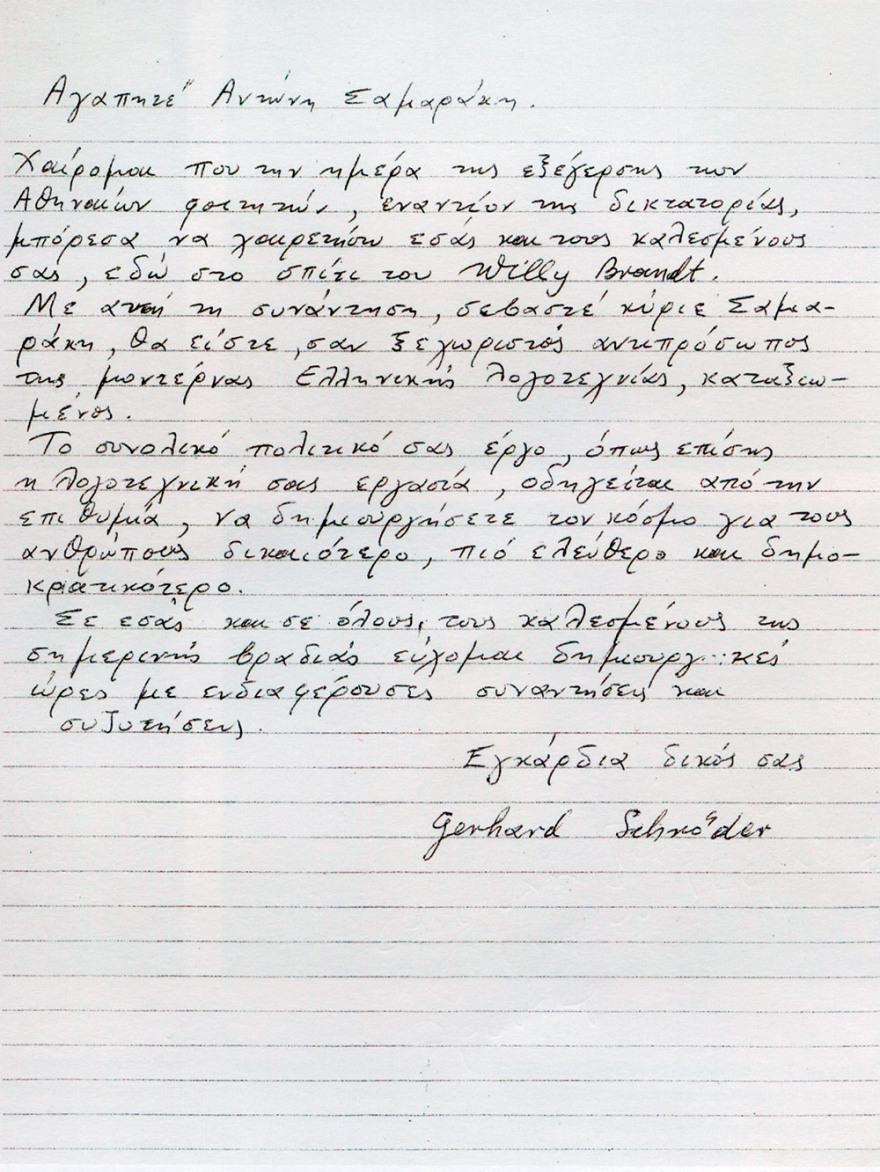 Αγαπητέ Αντώνη Σαμαράκη.
Χαίρομαι που την ημέρα της εξέγερσης των
Αθηναίων φοιτητών, εναντίον της δικτατορίας,
μπόρεσα να χαιρετήσω εσάς και τους καλεσμένους
σας, εδώ στο σπίτι του Willy Brandt.
Με αυτή τη συνάντηση, σεβαστέ κύριε Σαμα-
ράκη, θα είστε, σαν ξεχωριστός αντιπρόσωπος
της μοντέρνας Ελληνικής λογοτεχνίας, καταξιω-
μένος.
Το συνολικό πολιτικό σας έργο, όπως επίσης
η λογοτεχνική σας εργασία, οδηγείται από την
επιθυμία, να δημιουργήσετε τον κόσμο για τους
ανθρώπους δικαιότερο, πιό ελεύθερο και δημο-
κρατικότερο.
Σε εσάς και σε όλους, τους καλεσμένους της
σημερινής βραδιάς εύχομαι
ώρες με ενδιαφέρουσες συναντήσεις και
συζητήσεις.
Εγκάρδια δικός σας
Gerhard Schröder